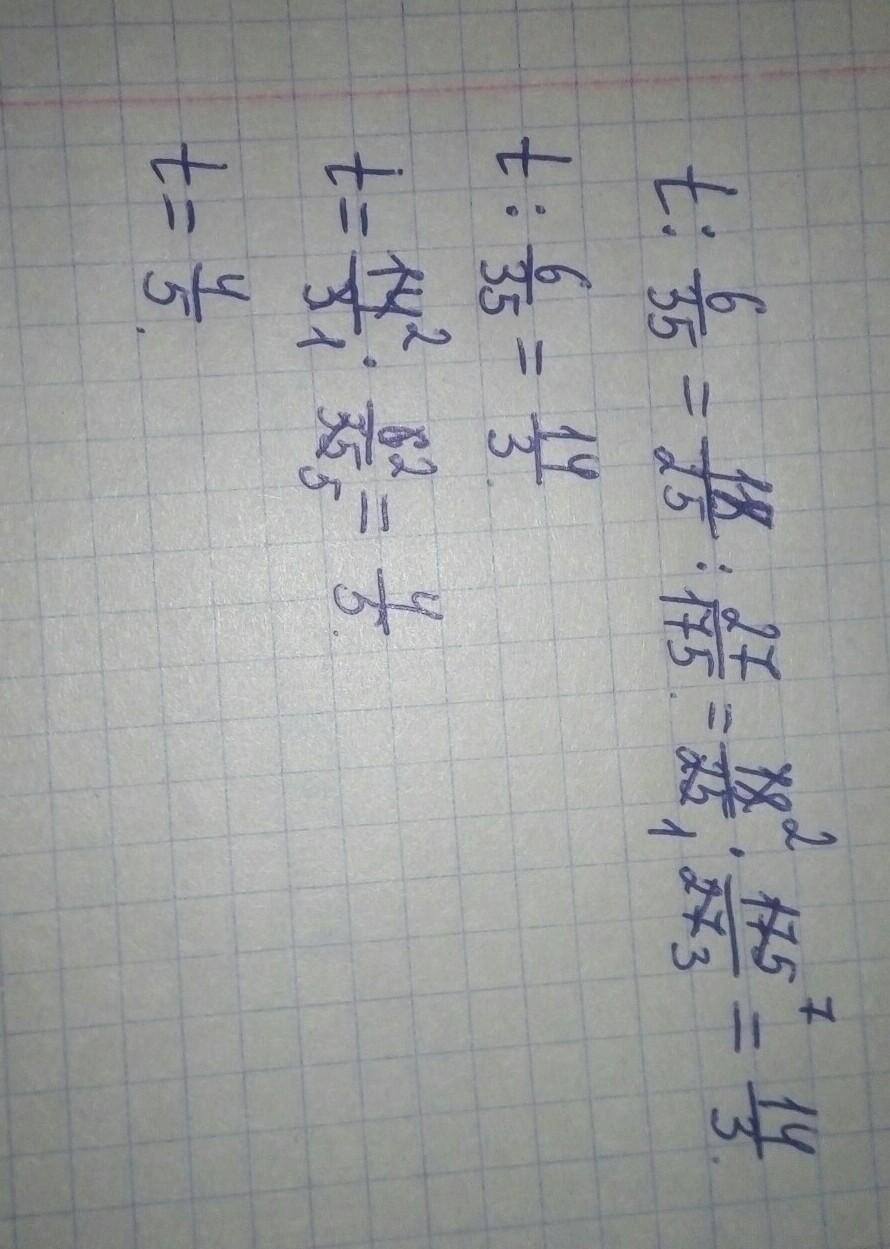 t : 6/35 = 18/25 : 27/175 = 18²/25₁ · 175⁷/27₃ = 14/3.
t : 6/35 = 14/3.
t = 14²/3₁ · 6²/35₅ = 4/5.
t = 4/5.